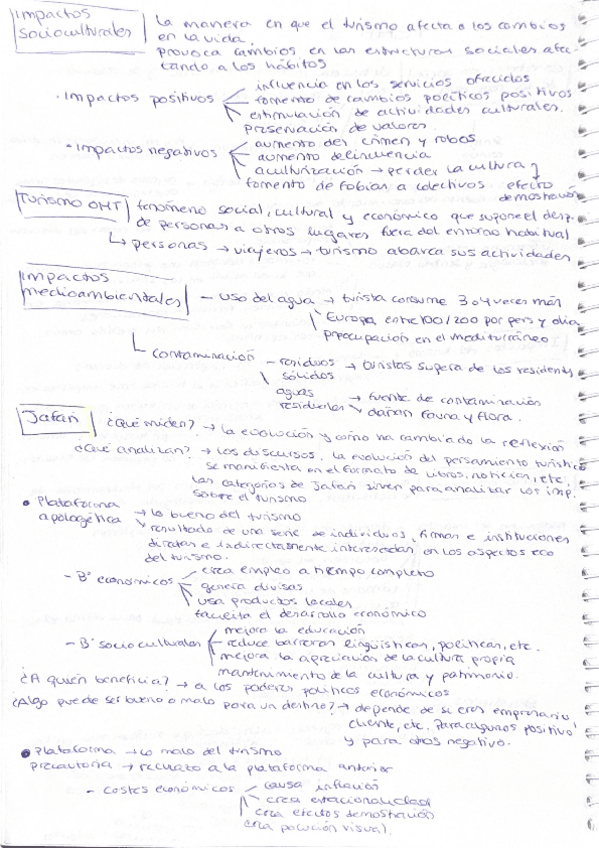 Impactos socioculturales | La manera en que el turismo afecta a los cambios
en la vida.
provoca cambios en las estructuras sociales afec-
tando a los hábitos
· Impactos positivos
influencia en los servicios ofrecidos
fomento de cambios políticos positivos
estimulación de actividades culturales.
preservación de valores.
· Impactos negativos
aumento del crimen y robos
aumento delincuencia
aculturización → perder la cultura
fomento de fobias a colectivos efecto
demostración
Turismo OMT | fenómeno social, cultural y económico que supone el desp.
de personas a otros lugares fuera del entorno habitual
↳ personas → viajeros → turismo abarca sus actividades
Impactos
medioambientales
- uso del agua → turista consume 3 o 4 veces más
Europa entre 100/200 por pers y día
preocupación en el mediterráneo
contaminación - residuos sólidos → turistas supera de los residents
aguas residuales → fuente de contaminación
dañan fauna y flora.
Jafari | ¿Qué miden? → la evolución y como ha cambiado la reflexión
¿Qué analizan? → Los discursos, la evolución del pensamiento turístico
se manifiesta en el formato de libros, noticias, etc.
Las categorías de Jafari sirven para analizar los imp.
sobre el turismo
• Plataforma apologética → lo bueno del turismo
resultado de una serie de individuos, firmas e instituciones
directas e indirectamente interesadas en los aspectos eco
del turismo.
- Bº económicos
crea empleo a tiempo completo
genera divisas
usa productos locales
facilita el desarrollo económico
- Bº socioculturales
mejora la educación
reduce barreras lingüísticas, políticas, etc.
mejora la apreciación de la cultura propia
mantenimiento de la cultura y patrimonio.
¿A quién beneficia? → a los poderes políticos económicos
¿Algo puede ser bueno o malo para un destino? → depende de si eres empresario,
cliente, etc. Para algunos positivo
y para otros negativo.
• Plataforma → lo malo del turismo
precautoria → rechazo a la plataforma anterior
- costes económicos
causa inflación
crea estacionalidad
crea efectos demostración
crea polución visual.